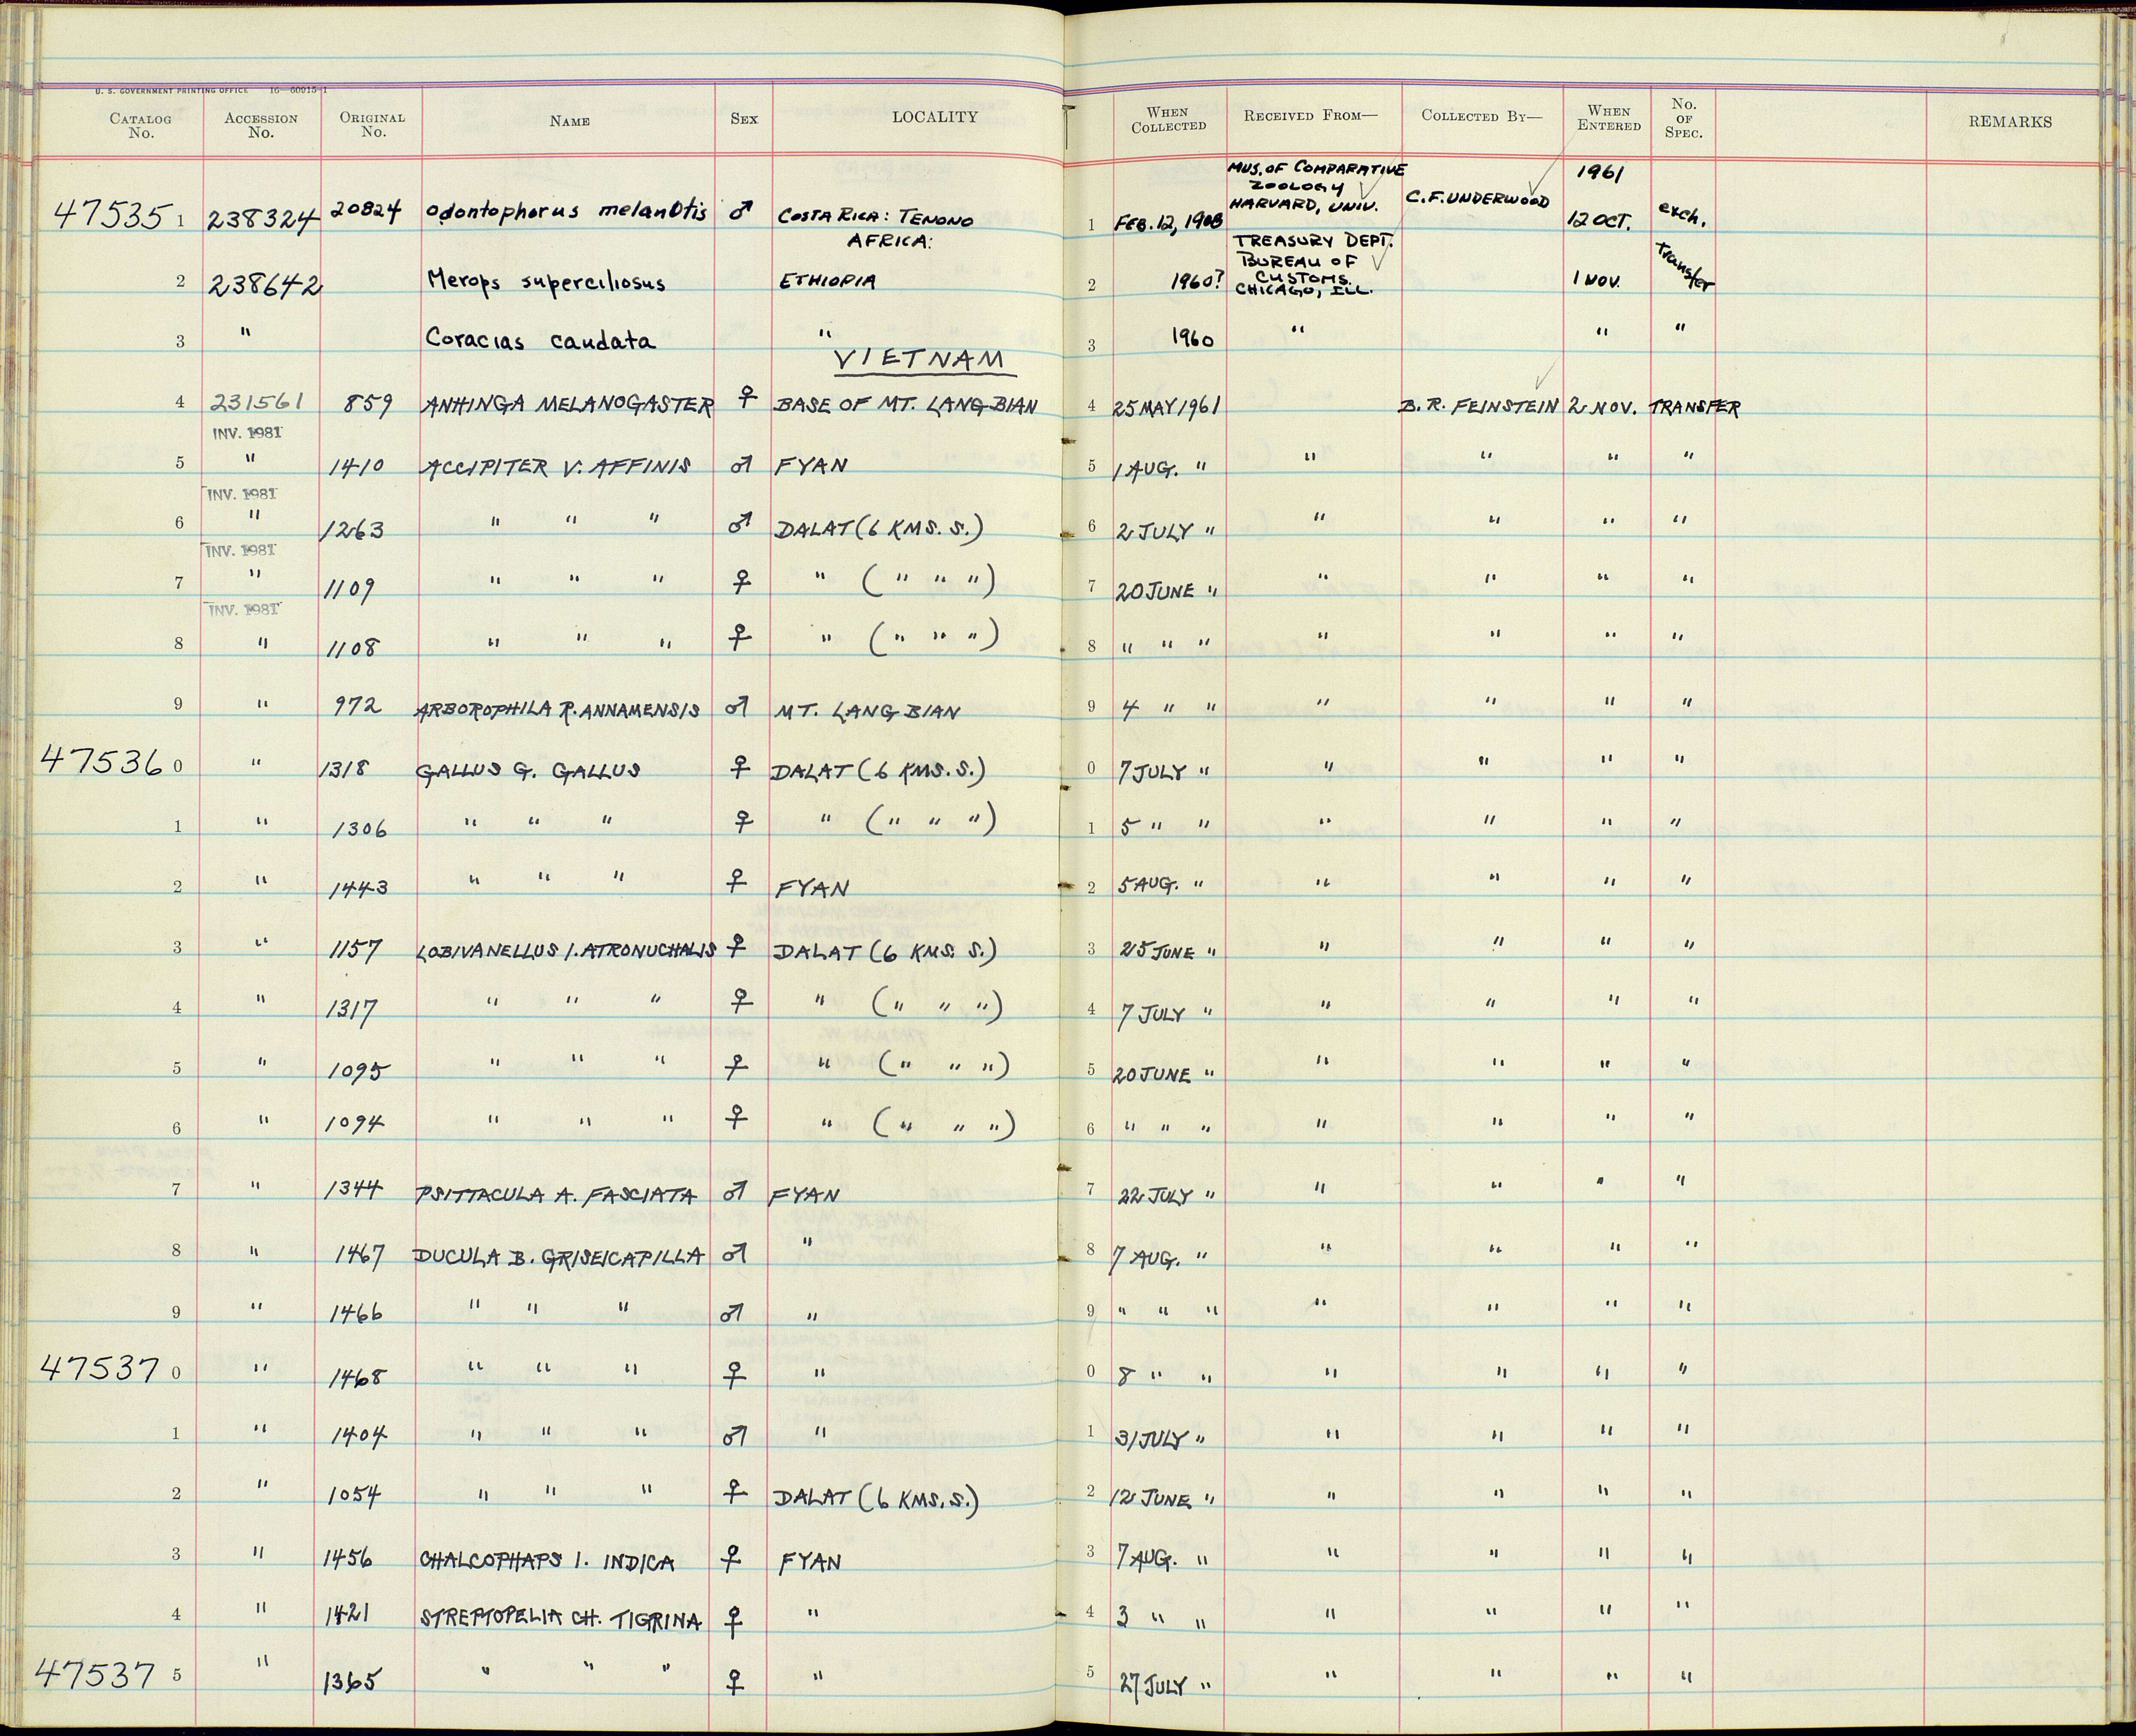 U. S. GOVERNMENT PRINTING OFFICE 16—60915-1
CATALOG No. ACCESSION No. ORIGINAL No. NAME SEX LOCALITY WHEN COLLECTED RECEIVED FROM— COLLECTED BY— WHEN ENTERED No. OF SPEC. REMARKS
MUS. OF COMPARATIVE ZOOLOGY HARVARD, UNIV. 1961
47535 1 238324 20824 Odontophorus melanOtis ♂ COSTA RICA: TENONO 1 FEB. 12, 1908 C.F. UNDERWOOD 12 OCT. exch.
AFRICA: TREASURY DEPT. BUREAU OF CUSTOMS. CHICAGO, ILL.
2 238642 Merops superciliosus ETHIOPIA 2 1960? 1 NOV. Transfer
3 " Coracias caudata " 3 1960 " " "
VIETNAM
4 231561 859 ANHINGA MELANOGASTER ♀ BASE OF MT. LANG BIAN 4 25 MAY 1961 B. R. FEINSTEIN 2 NOV. TRANSFER
INV. 1981
5 " 1410 ACCIPITER V. AFFINIS ♂ FYAN 5 1 AUG. " " " " "
INV. 1981
6 " 1263 " " " ♂ DALAT (6 KMS. S.) 6 2 JULY " " " " "
INV. 1981
7 " 1109 " " " ♀ " (" " ") 7 20 JUNE " " " " "
INV. 1981
8 " 1108 " " " ♀ " (" " ") 8 " " " " " " "
9 " 972 ARBOROPHILA R. ANNAMENSIS ♂ MT. LANG BIAN 9 4 " " " " " "
47536 0 " 1318 GALLUS G. GALLUS ♀ DALAT (6 KMS. S.) 0 7 JULY " " " " "
1 " 1306 " " " ♀ " (" " ") 1 5 " " " " " "
2 " 1443 " " " ♀ FYAN 2 5 AUG. " " " " "
3 " 1157 LOBIVANELLUS I. ATRONUCHALIS ♀ DALAT (6 KMS. S.) 3 25 JUNE " " " " "
4 " 1317 " " " ♀ " (" " ") 4 7 JULY " " " " "
5 " 1095 " " " ♀ " (" " ") 5 20 JUNE " " " " "
6 " 1094 " " " ♀ " (" " ") 6 " " " " " " "
7 " 1344 PSITTACULA A. FASCIATA ♂ FYAN 7 22 JULY " " " " "
8 " 1467 DUCULA B. GRISEICAPILLA ♂ " 8 7 AUG. " " " " "
9 " 1466 " " " ♂ " 9 " " " " " " "
47537 0 " 1468 " " " ♀ " 0 8 " " " " " "
1 " 1404 " " " ♂ " 1 31 JULY " " " " "
2 " 1054 " " " ♀ DALAT (6 KMS. S.) 2 12 JUNE " " " " "
3 " 1456 CHALCOPHAPS I. INDICA ♀ FYAN 3 7 AUG. " " " " "
4 " 1421 STREPTOPELIA CH. TIGRINA ♀ " 4 3 " " " " " "
47537 5 " 1365 " " " ♀ " 5 27 JULY " " " " "